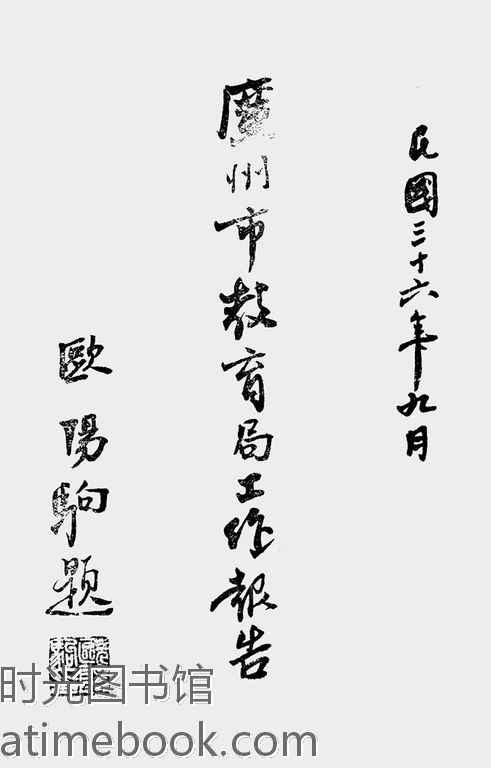 民國三十六年九月
廣州市教育局工作報告
歐陽駒題
时光图书馆
atimebook.com